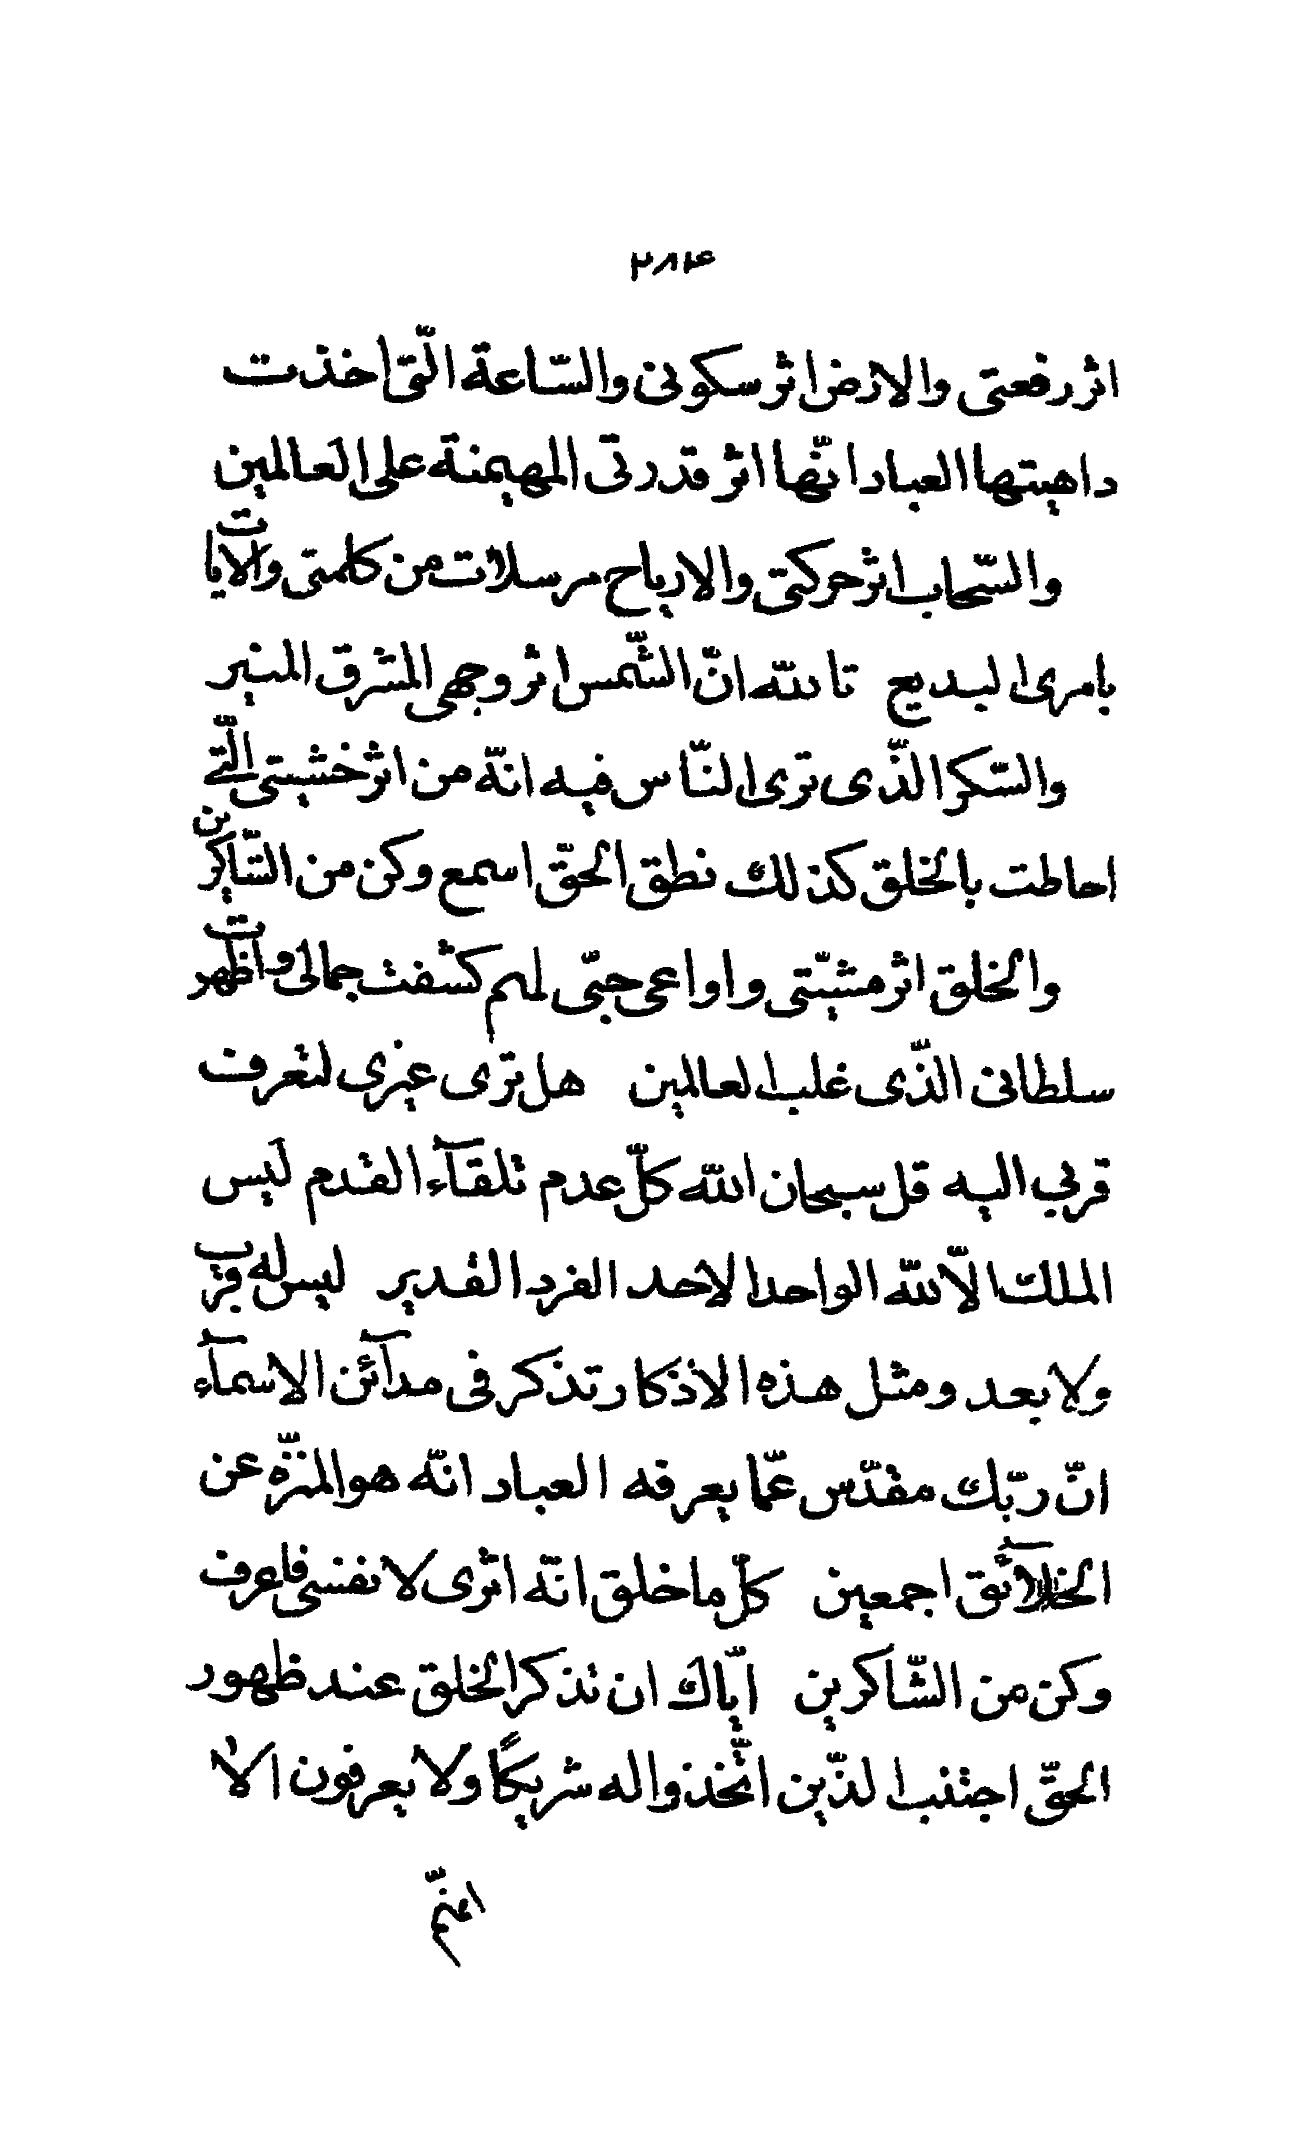 ۲۸۴
اثر رفعتی والارض اثر سکونی والسّاعة الّتی اخذت
داهیتها العباد انّها اثر قدرتی المهیمنة علی العالمین
والسّحاب اثر حرکتی والاریاح مرسلات من کلمتی والایات
بامری البدیع تالله انّ الشّمس اثر وجهی المشرق المنیر
والسّکر الّذی تری النّاس فیه انّه من اثر خشیتی الّتی
احاطت بالخلق کذلك نطق الحقّ اسمع وکن من الشّاکرین
والخلق اثر مشیّتی واواعی حبّی لهم کشفت جمالی واظهرت
سلطانی الّذی غلب العالمین هل تری غیری لتعرف
قربی الیه قل سبحان الله کلّ عدم تلقآء القدم لیس
الملك الّا لله الواحد الاحد الفرد القدیر لیس له قرب
ولا بعد ومثل هذه الاذکار تذکر فی مدآئن الاسمآء
انّ ربّك مقدّس عمّا یعرفه العباد انّه هو المنزّه عن
الخلآئق اجمعین کلّ ما خلق انّه اثری لا نفسی فاعرف
وکن من الشّاکرین ایّاك ان تذکر الخلق عند ظهور
الحقّ اجتنب الّذین اتّخذوا له شریکًا ولا یعرفون الا